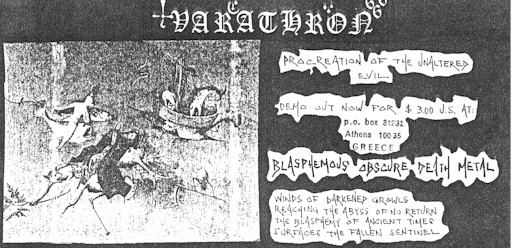 VARATHRON
PROCREATION OF THE UNALTERED
EVIL
DEMO OUT NOW FOR $ 3.00 U.S. AT:
p.o. box 81232
Athens 10035
GREECE
BLASPHEMOUS OBSCURE DEATH METAL
WINDS OF DARKENED GROWLS
REACHING THE ABYSS OF NO RETURN
THE BLASPHEMY OF ANCIENT TIMES
SURFACES THE FALLEN SENTINEL